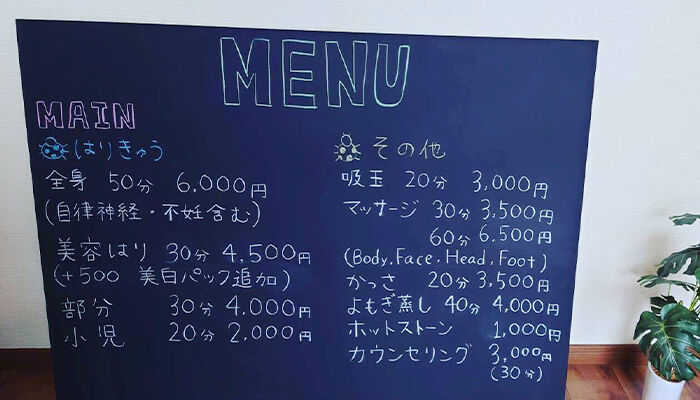 MENU
MAIN
はりきゅう
全身 50分 6,000円
(自律神経・不妊含む)
美容はり 30分 4,500円
(+500 美白パック追加)
部分 30分 4,000円
小児 20分 2,000円
その他
吸玉 20分 3,000円
マッサージ 30分 3,500円
60分 6,500円
(Body, Face・Head, Foot)
かっさ 20分 3,500円
よもぎ蒸し 40分 4,000円
ホットストーン 1,000円
カウンセリング 3,000円
(30分)